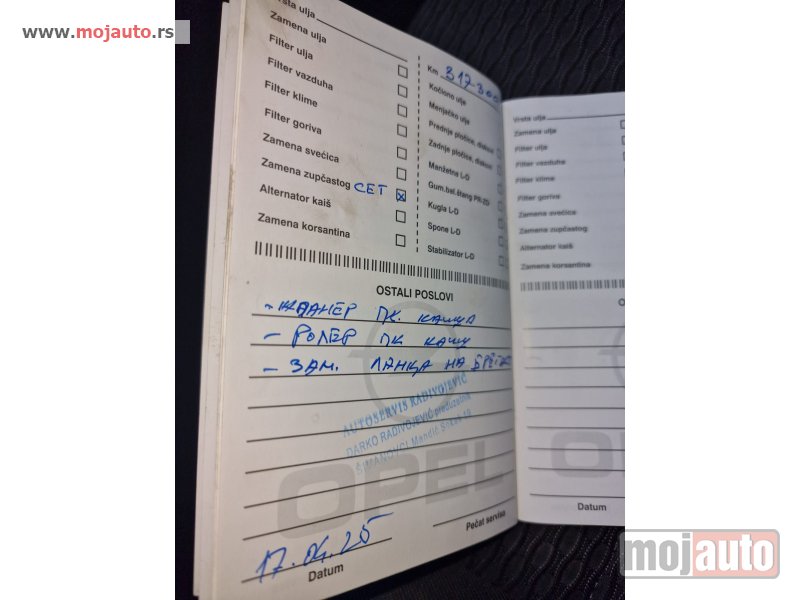 www.mojauto.rs
Vrsta ulja
Zamena ulja
Filter ulja
Filter vazduha
Filter klime
Filter goriva
Zamena svećica
Zamena zupčastog СЕТ
Alternator kaiš
Zamena korsantina
Km 317.300
Kočiono ulje
Menjačko ulje
Prednje pločice, diskovi
Zadnje pločice, diskovi
Manžetne L-D
Gum.bal.štang PR-ZD
Kugla L-D
Spone L-D
Stabilizator L-D
OSTALI POSLOVI
- ПК.
- РОЛЕР ПК
- ЗАМ. ЛАНЦА НА
AUTOSERVIS RADIVOJEVIĆ
DARKO RADIVOJEVIĆ preduzetnik
ŠIMANOVCI
OPEL
17.04.25
Datum
Pečat servisa
Vrsta ulja
Zamena ulja
Filter ulja
Filter vazduha
Filter klime
Filter goriva
Zamena svećica
Zamena zupčastog
Alternator kaiš
Zamena korsantina
Datum
mojauto